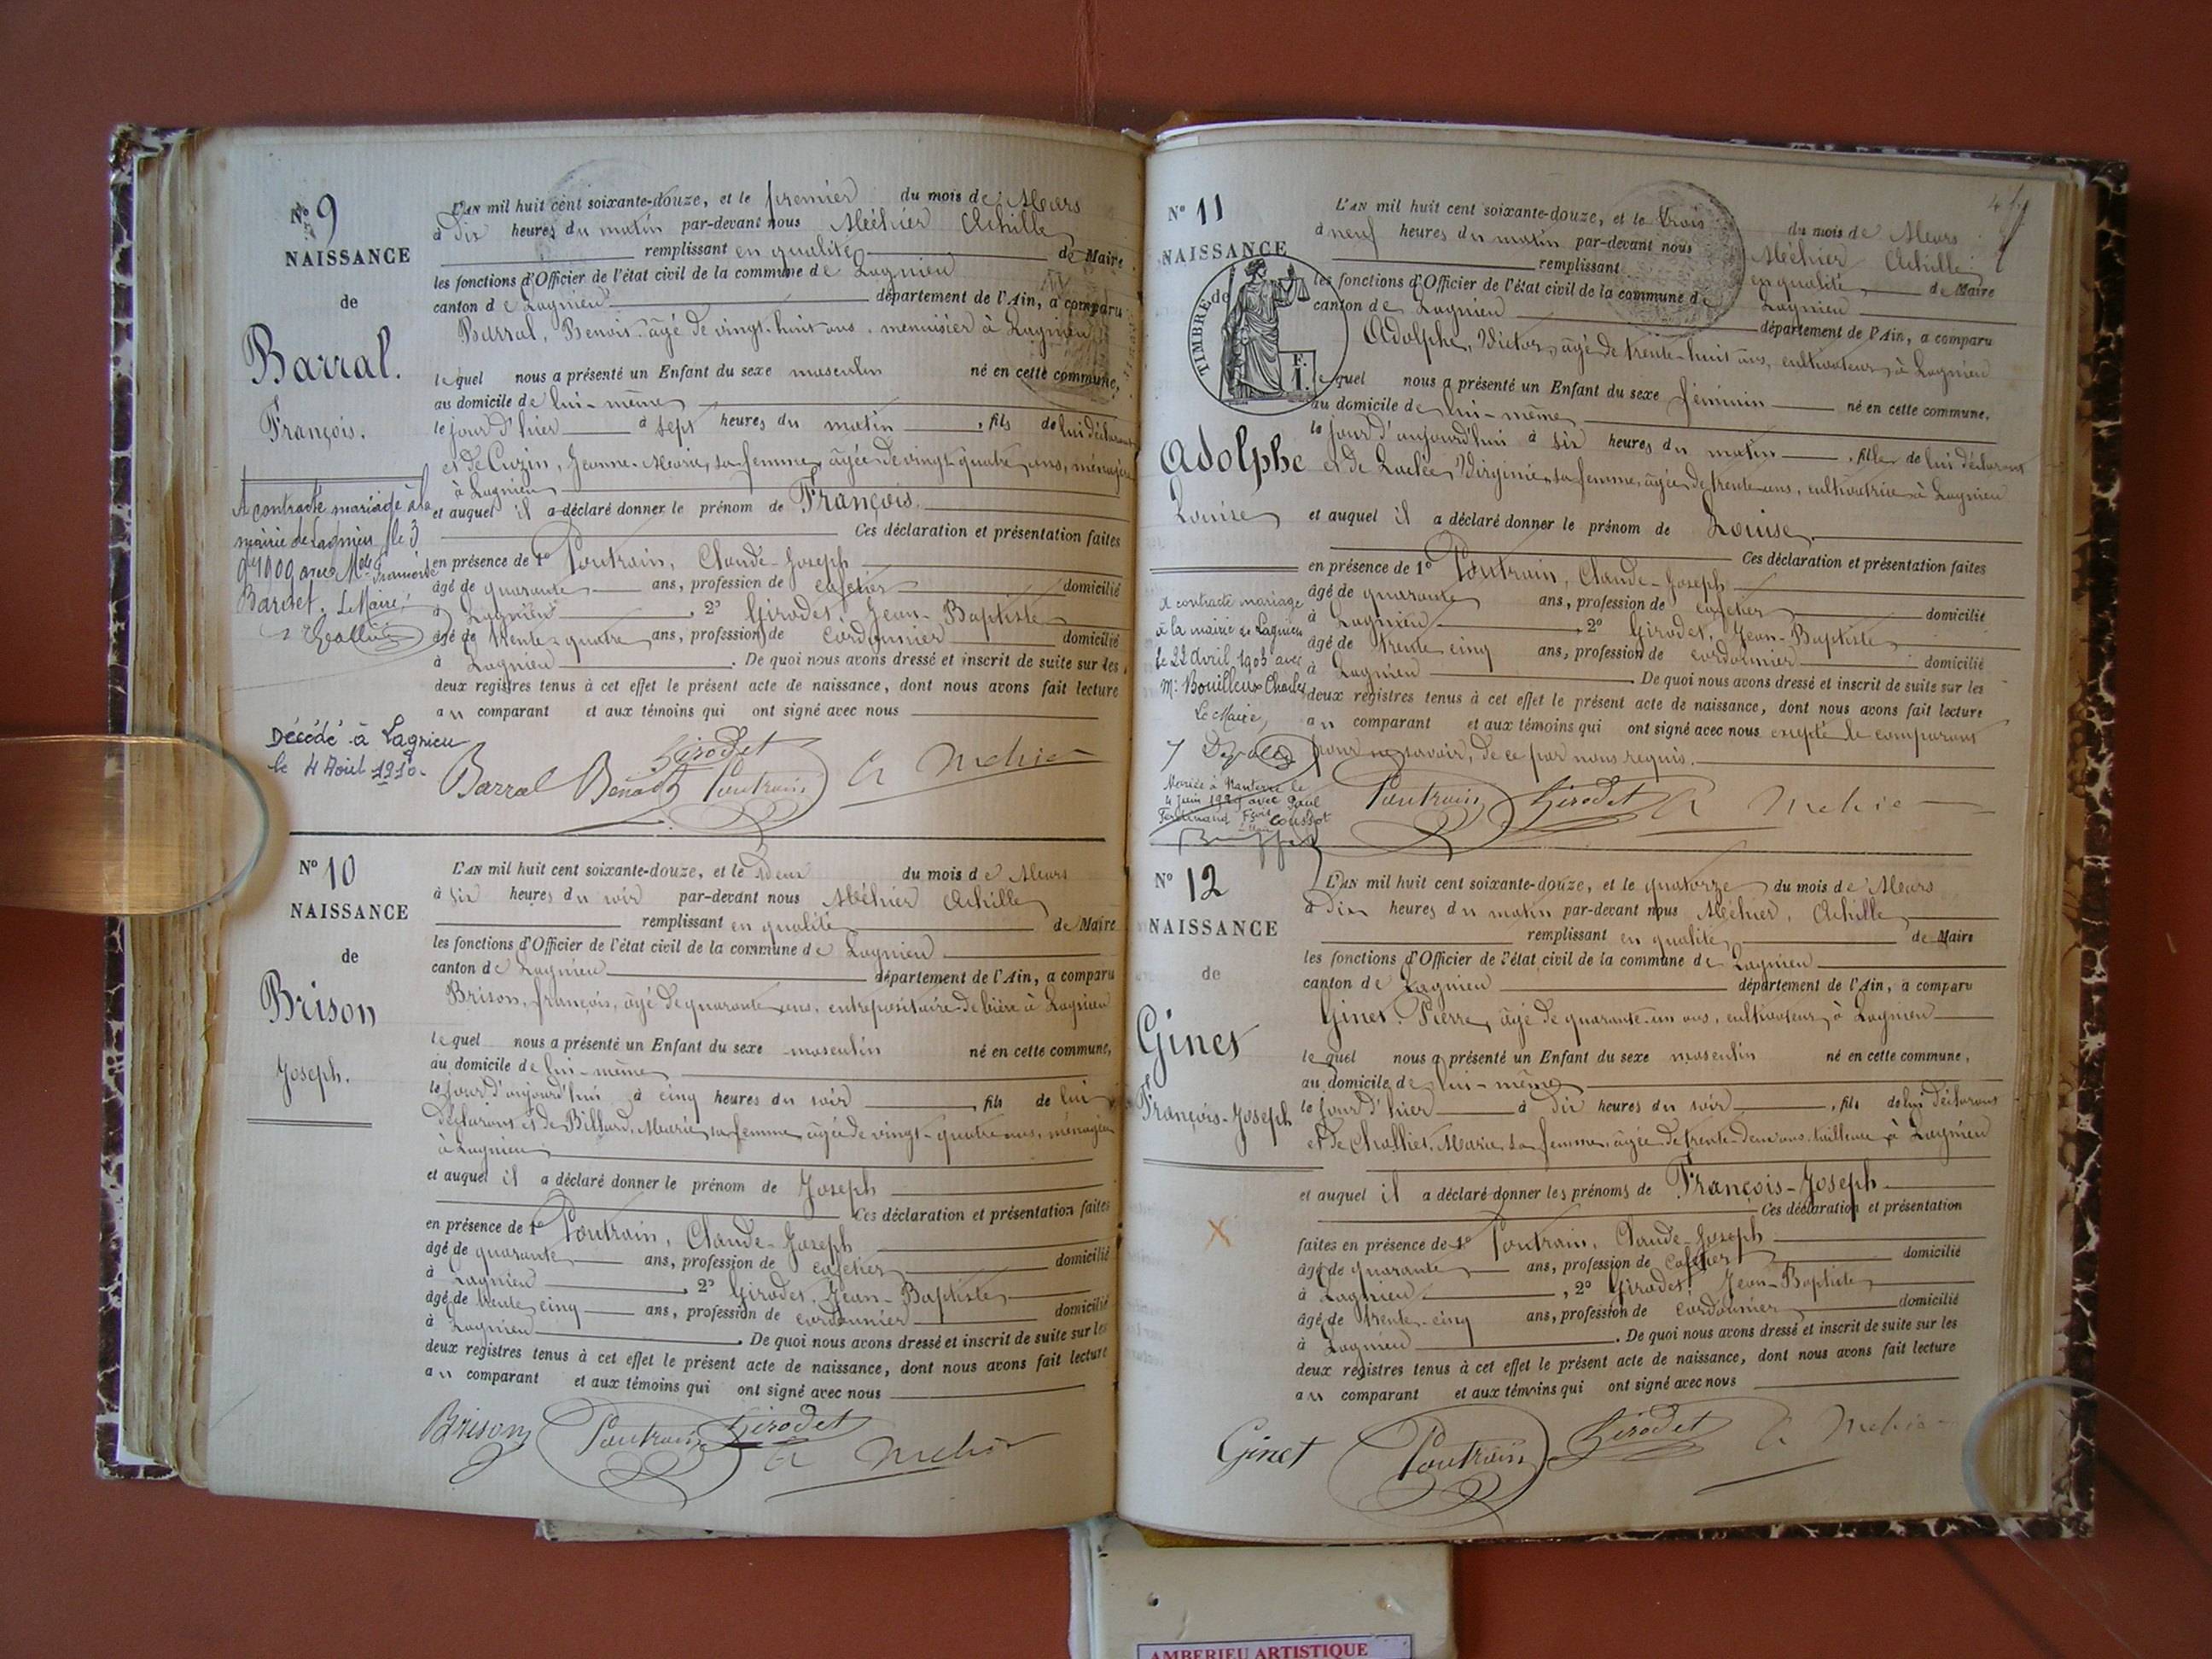 N° 9
NAISSANCE
de
Barral.
François.
A contracté mariage à la
mairie de Lagnieu le 3
1909 avec Melle
Le Maire,
Décédé à Lagnieu
le 4 Août 1910.
L'AN mil huit cent soixante-douze, et le premier du mois de Mars
à dix heures du matin par-devant nous Méhier Achille
remplissant en qualité de Maire
les fonctions d'Officier de l'état civil de la commune de Lagnieu
canton de Lagnieu département de l'Ain, a comparu
Barral, Benoit âgé de vingt-huit ans, menuisier à Lagnieu
lequel nous a présenté un Enfant du sexe masculin né en cette commune,
au domicile de lui-même
le jour d'hier à sept heures du matin, fils de lui déclarant
et de Cuzin, Jeanne-Marie, sa femme, âgée de vingt-quatre ans, ménagère
à Lagnieu
et auquel il a déclaré donner le prénom de François.
Ces déclaration et présentation faites
en présence de 1° Poutrain, Claude-Joseph
âgé de quarante ans, profession de cafetier domicilié
à Lagnieu, 2° Girodet, Jean-Baptiste
âgé de trente-quatre ans, profession de cordonnier domicilié
à Lagnieu. De quoi nous avons dressé et inscrit de suite sur les
deux registres tenus à cet effet le présent acte de naissance, dont nous avons fait lecture
au comparant et aux témoins qui ont signé avec nous
Barral Benoit Girodet Poutrain A Mehier
N° 10
NAISSANCE
de
Brison
Joseph.
L'AN mil huit cent soixante-douze, et le deux du mois de Mars
à six heures du soir par-devant nous Méhier Achille
remplissant en qualité de Maire
les fonctions d'Officier de l'état civil de la commune de Lagnieu
canton de Lagnieu département de l'Ain, a comparu
Brison, françois, âgé de quarante ans, entrepositaire de bière à Lagnieu
lequel nous a présenté un Enfant du sexe masculin né en cette commune,
au domicile de lui-même
le jour d'aujourd'hui à cinq heures du soir, fils de lui
déclarant et de Billard, Marie, sa femme âgée de vingt-quatre ans, ménagère
à Lagnieu
et auquel il a déclaré donner le prénom de Joseph
Ces déclaration et présentation faites
en présence de 1° Poutrain, Claude-Joseph
âgé de quarante ans, profession de cafetier domicilié
à Lagnieu, 2° Girodet, Jean-Baptiste
âgé de trente cinq ans, profession de cordonnier domicilié
à Lagnieu. De quoi nous avons dressé et inscrit de suite sur les
deux registres tenus à cet effet le présent acte de naissance, dont nous avons fait lecture
au comparant et aux témoins qui ont signé avec nous
Brison Poutrain Girodet A Mehier
N° 11
NAISSANCE
de
TIMBRE
F.
1.
Adolphe
Louise
A contracté mariage
à la mairie de Lagnieu
le 22 Avril 1905 avec
Mr Bouilleux Charles
Le Maire,
Mariée à Nanterre le
4 Juin avec Paul
Ferdinand Coussot
L'AN mil huit cent soixante-douze, et le trois du mois de Mars
à neuf heures du matin par-devant nous Méhier Achille
remplissant en qualité de Maire
les fonctions d'Officier de l'état civil de la commune de Lagnieu
canton de Lagnieu département de l'Ain, a comparu
Adolphe, Victor, âgé de trente-huit ans, cultivateur à Lagnieu
lequel nous a présenté un Enfant du sexe féminin né en cette commune.
au domicile de lui-même
le jour d'aujourd'hui à six heures du matin, fille de lui déclarant
et de Virginie, sa femme, âgée de trente ans, cultivatrice à Lagnieu
et auquel il a déclaré donner le prénom de Louise.
Ces déclaration et présentation faites
en présence de 1° Poutrain, Claude-Joseph
âgé de quarante ans, profession de cafetier domicilié
à Lagnieu, 2° Girodet, Jean-Baptiste
âgé de trente cinq ans, profession de cordonnier domicilié
à Lagnieu. De quoi nous avons dressé et inscrit de suite sur les
deux registres tenus à cet effet le présent acte de naissance, dont nous avons fait lecture
au comparant et aux témoins qui ont signé avec nous excepté le comparant
pour ne savoir, de ce par nous requis.
Poutrain Girodet A Mehier
N° 12
NAISSANCE
de
Ginet
François-Joseph
L'AN mil huit cent soixante-douze, et le quatorze du mois de Mars
à dix heures du matin par-devant nous Méhier, Achille
remplissant en qualité de Maire
les fonctions d'Officier de l'état civil de la commune de Lagnieu
canton de Lagnieu département de l'Ain, a comparu
Ginet, Pierre, âgé de quarante-un ans, cultivateur à Lagnieu
lequel nous a présenté un Enfant du sexe masculin né en cette commune,
au domicile de lui-même
le jour d'hier à dix heures du soir, fils de lui déclarant
et de Chollier, Marie, sa femme, âgée de trente-deux ans, tailleuse à Lagnieu
et auquel il a déclaré donner les prénoms de François-Joseph
Ces déclaration et présentation
faites en présence de 1° Poutrain, Claude-Joseph
âgé de quarante ans, profession de cafetier domicilié
à Lagnieu, 2° Girodet, Jean-Baptiste
âgé de trente-cinq ans, profession de cordonnier domicilié
à Lagnieu. De quoi nous avons dressé et inscrit de suite sur les
deux registres tenus à cet effet le présent acte de naissance, dont nous avons fait lecture
au comparant et aux témoins qui ont signé avec nous
Ginet Poutrain Girodet A Mehier
AMBERIEU ARTISTIQUE